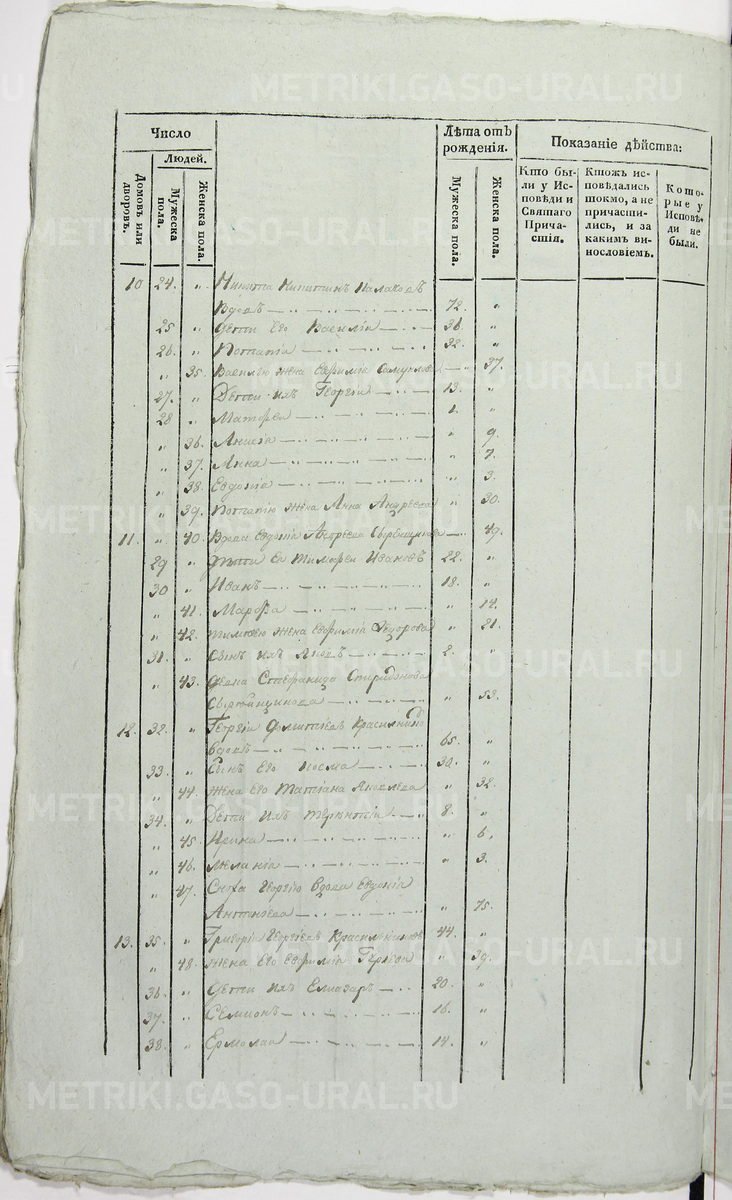 Число
Лѣта отъ рожденія.
Показаніе дѣйства:
Людей.
Домовъ или дворовъ.
Мужеска пола.
Женска пола.
Мужеска пола.
Женска пола.
Кто бы-
ли у Ис-
повѣди и
Святаго
Прича-
стія.
Ктожъ ис-
повѣдались
токмо, а не
причасти-
лись, и за
какимъ ви-
нословіемъ.
Кото-
рые у
Исповѣ-
ди не
были.
10 24. " Никита Никитинъ
Вдовъ 72. "
25 " Дети Его Василiй 36 "
26. " Потапiй 32. "
" 35. Василiю жена Евфимiя " 37.
27. " Дѣти ихъ Георгiй 13. "
28 " Матфей 1. "
" 36. Анисiя " 9.
" 37. Анна " 7.
" 38. Евдокiя " 3.
" 39. Потапiю жена Анна Андреева " 30.
11. " 40. Вдова Евдокiя Андреева " 49.
29 " Дети Ея Тимофей Ивановъ 22. "
30 " Иванъ 18. "
" 41. Марфа " 14.
" 42. Тимофею жена Евфимiя Федорова " 21.
31. " Сынъ ихъ Яковъ 2. "
" 43. Стефанида Спиридонова
" 53.
12. 32. " Георгiй
Вдовъ 65. "
33. " Сынъ Его Косма 30. "
" 44. Жена Его Татiана Яковлева " 32.
34. " Дети ихъ Терентiй 8. "
" 45. Ирина " 6.
" 46. Меланiя " 3.
" 47. Сноха Георгiю Вдова Евдокiя
" 75.
13. 35. " Григорiй Георгiевъ Красильниковъ 44. "
" 48. Жена Его Евфимiя " 39.
36. " Дети ихъ Елиазаръ 20. "
37. " Семионъ 16. "
38. " Ермолай 14. "
METRIKI.GASO-URAL.RU